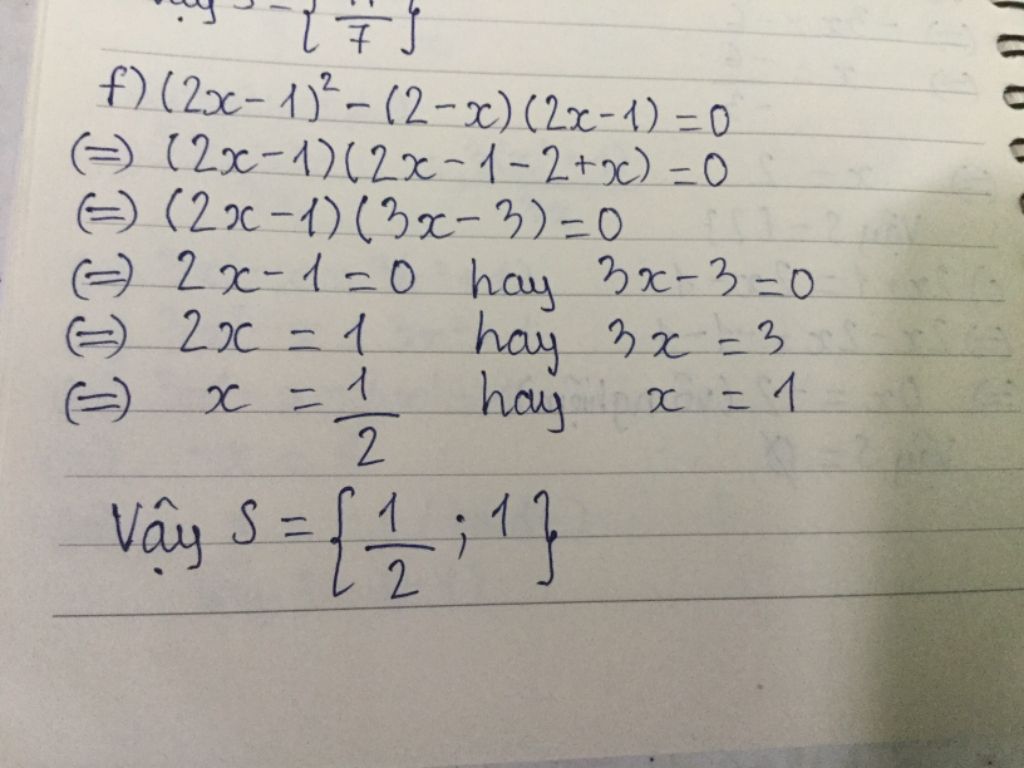 f) (2x - 1)² - (2 - x)(2x - 1) = 0
(=) (2x - 1)(2x - 1 - 2 + x) = 0
(=) (2x - 1)(3x - 3) = 0
(=) 2x - 1 = 0 hay 3x - 3 = 0
(=) 2x = 1 hay 3x = 3
(=) x = 1/2 hay x = 1
Vậy S = {1/2 ; 1}